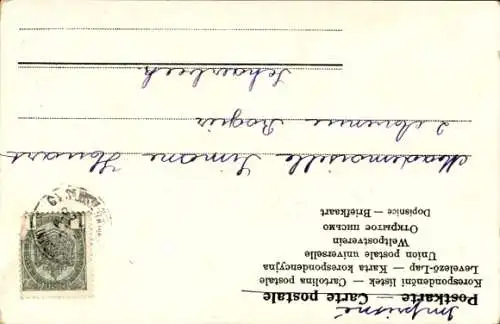 Imprimé
Postkarte — Carte postale
Korespondenční lístek — Cartolina postale
Levelező-Lap — Karta korespondencyjna
Union postale universelle
Weltpostverein
Открытое письмо
Dopisnice — Briefkaart
Mademoiselle Simone Honart
2 Avenue Rogier
Schaerbeek